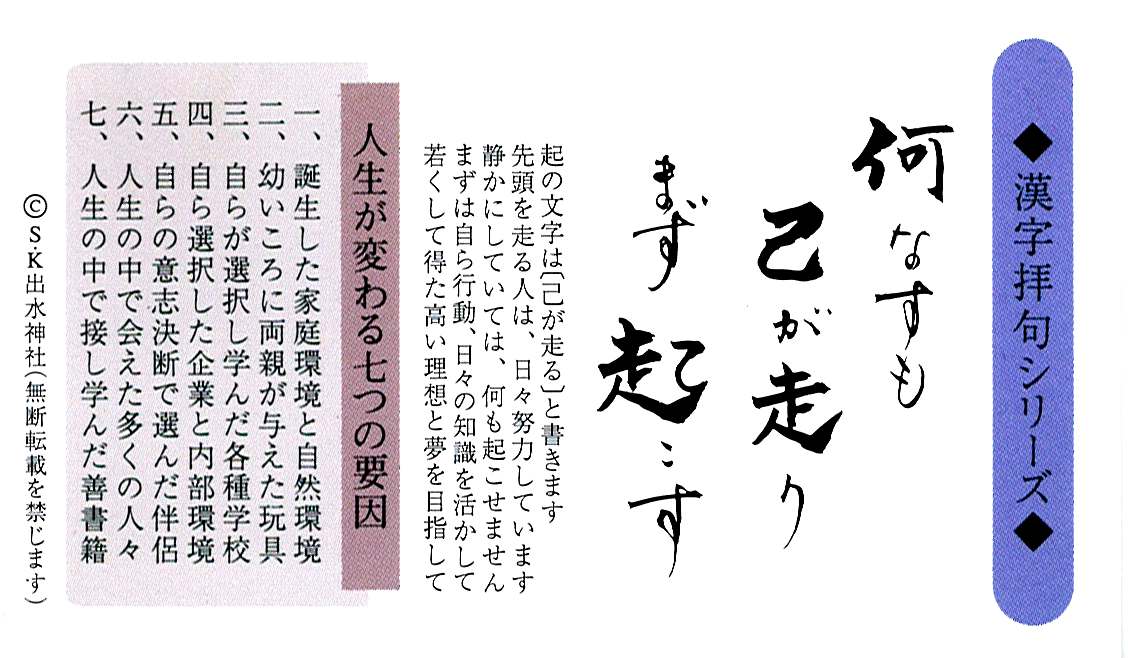 ◆漢字拝句シリーズ◆
何なすも
己が走り
まず起こす
起の文字は〔己が走る〕と書きます
先頭を走る人は、日々努力しています
静かにしていては、何も起こせません
まずは自ら行動、日々の知識を活かして
若くして得た高い理想と夢を目指して
人生が変わる七つの要因
一、誕生した家庭環境と自然環境
二、幼いころに両親が与えた玩具
三、自らが選択し学んだ各種学校
四、自ら選択した企業と内部環境
五、自らの意志決断で選んだ伴侶
六、人生の中で会えた多くの人々
七、人生の中で接し学んだ善書籍
©S.K出水神社(無断転載を禁じます)